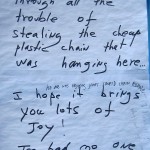 through all the
trouble of
stealing the cheap
plastic chain that
was hanging here...
I hope it brings
you lots of
Joy!
Too bad no one